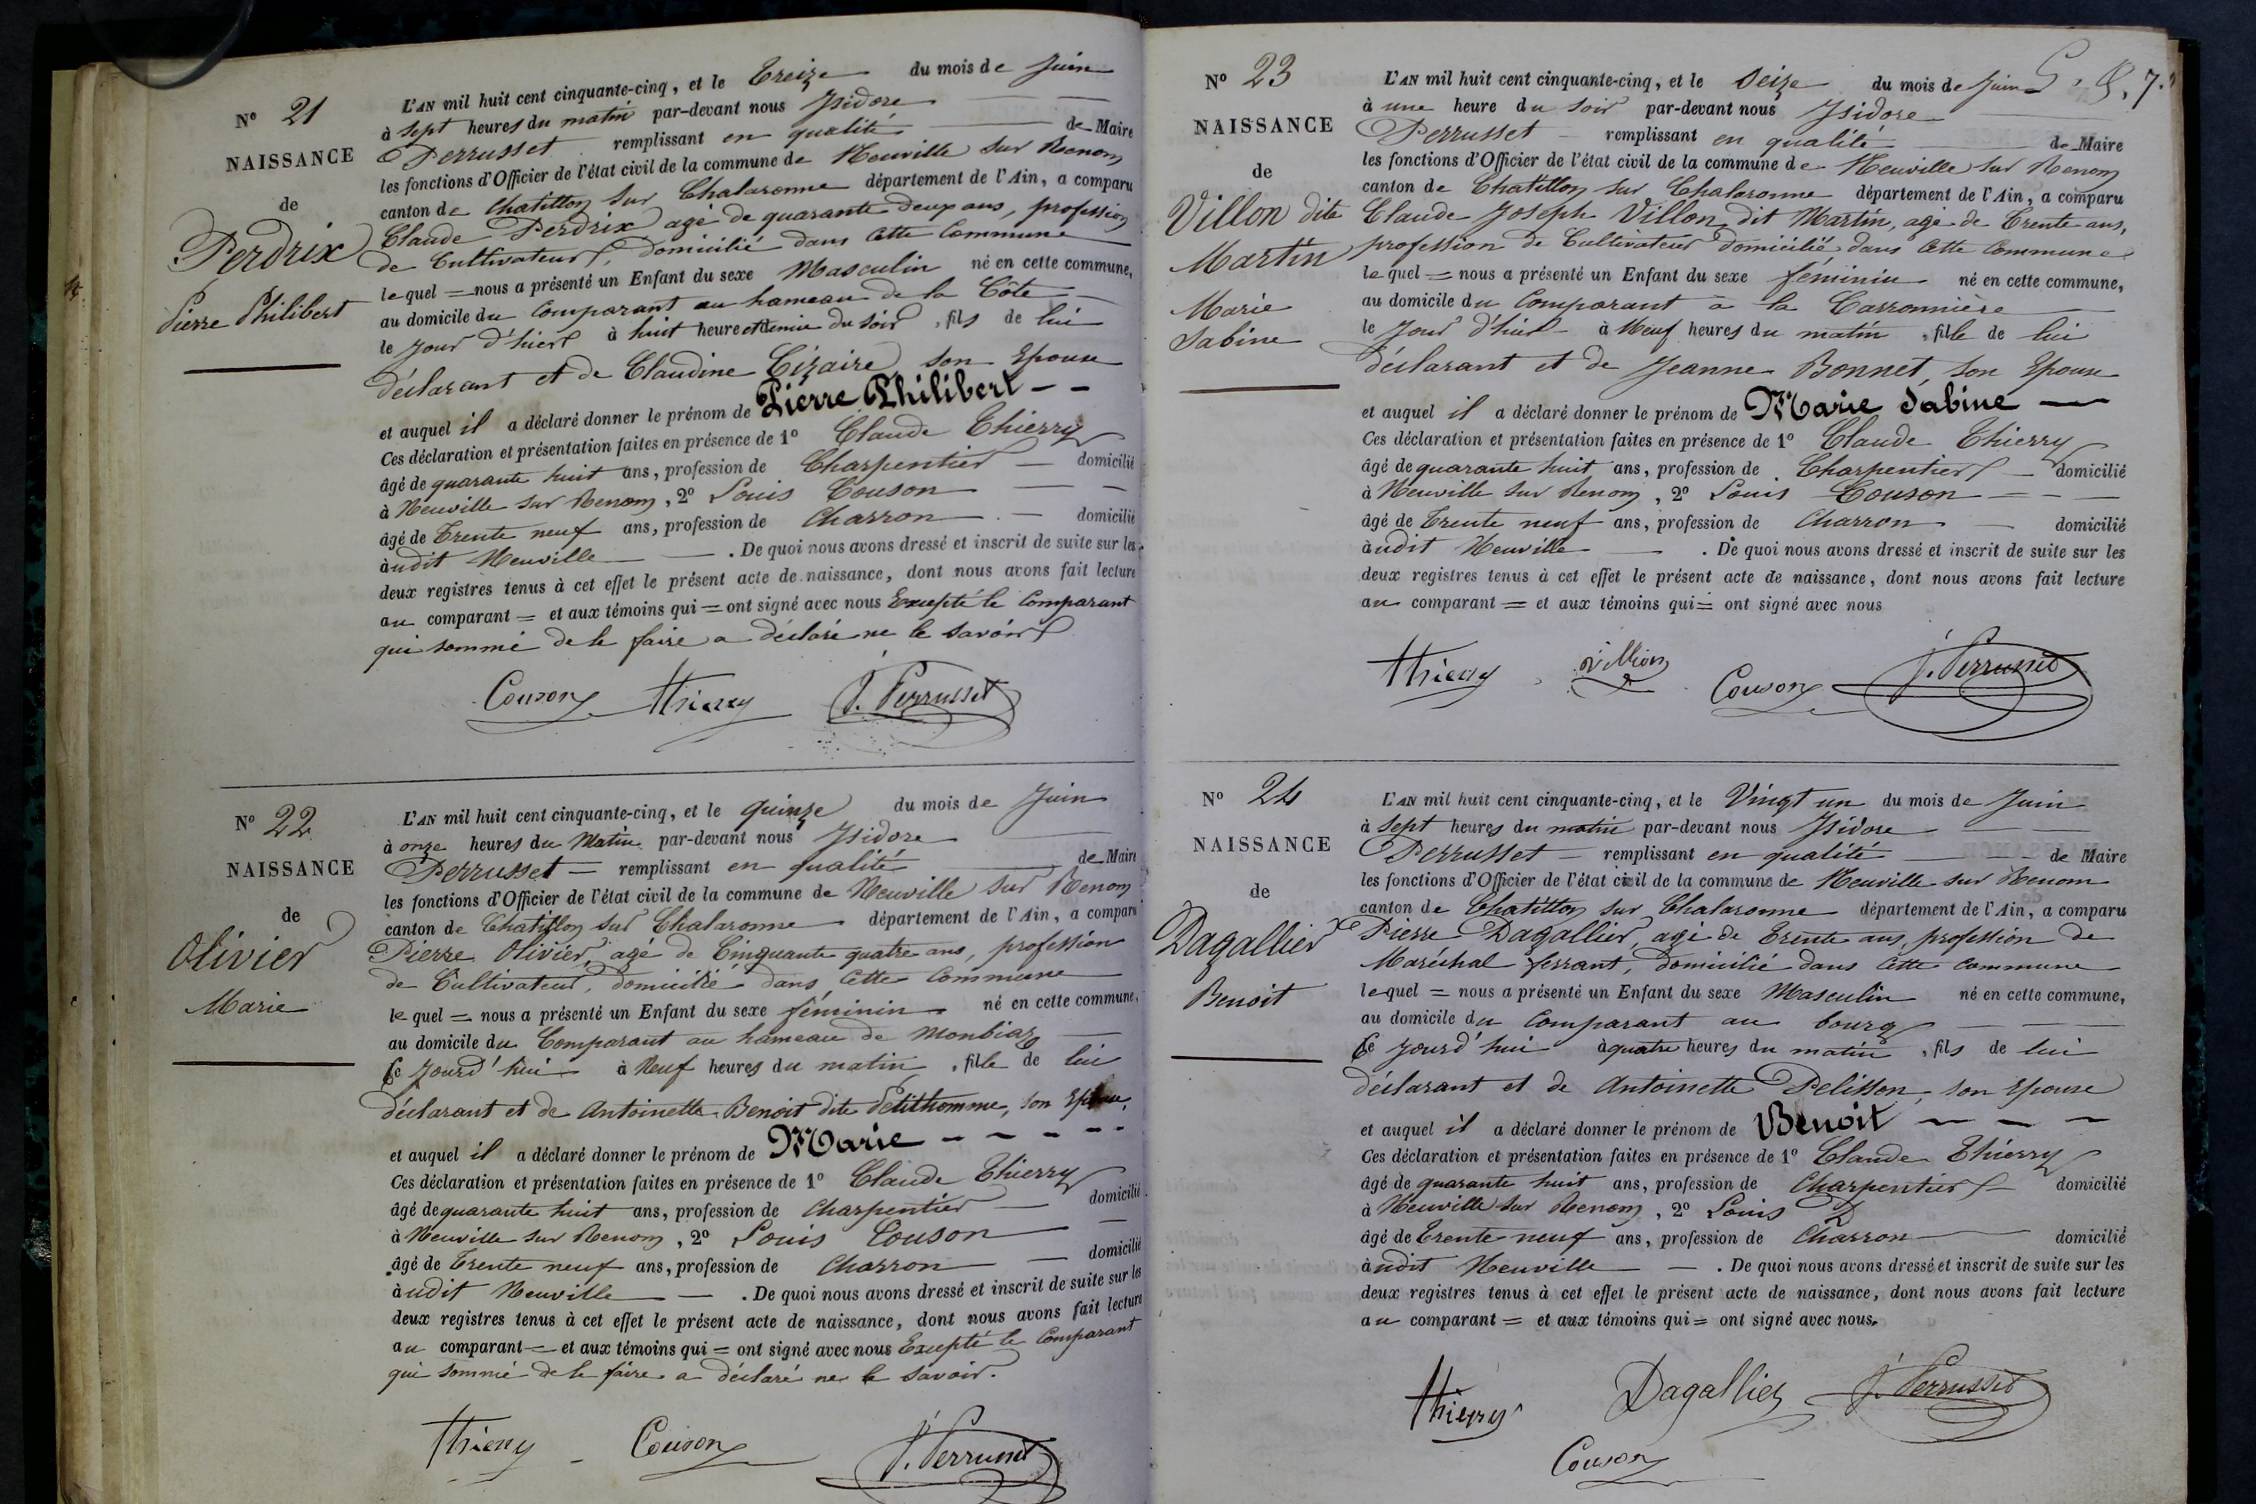 N° 21
NAISSANCE
de
Perdrix
Pierre Philibert
L'AN mil huit cent cinquante-cinq, et le Treize du mois de Juin
à sept heures du matin par-devant nous Isidore
Perrusset remplissant en qualité de Maire
les fonctions d'Officier de l'état civil de la commune de Neuville sur Renom
canton de Chatillon sur Chalaronne département de l'Ain, a comparu
Claude Perdrix agé de quarante deux ans, profession
de Cultivateur, domicilié dans cette Commune
lequel = nous a présenté un Enfant du sexe Masculin né en cette commune,
au domicile du Comparant au hameau de la Côte
le jour d'hier à huit heure et demie du soir, fils de lui
déclarant et de Claudine Cizaire son Epouse
et auquel il a déclaré donner le prénom de Pierre Philibert
Ces déclaration et présentation faites en présence de 1° Claude Thierry
âgé de quarante huit ans, profession de Charpentier domicilié
à Neuville sur Renom, 2° Louis Couson
âgé de Trente neuf ans, profession de Charron domicilié
audit Neuville. De quoi nous avons dressé et inscrit de suite sur les
deux registres tenus à cet effet le présent acte de naissance, dont nous avons fait lecture
au comparant = et aux témoins qui = ont signé avec nous Excepté le Comparant
qui sommé de le faire a déclaré ne le savoir
Couson Thierry J. Perrusset
N° 22
NAISSANCE
de
Olivier
Marie
L'AN mil huit cent cinquante-cinq, et le quinze du mois de Juin
à onze heures du Matin par-devant nous Isidore
Perrusset = remplissant en qualité de Maire
les fonctions d'Officier de l'état civil de la commune de Neuville sur Renom
canton de Chatillon sur Chalaronne département de l'Ain, a comparu
Pierre Olivier, agé de Cinquante quatre ans, profession
de Cultivateur, domicilié dans cette Commune
lequel = nous a présenté un Enfant du sexe féminin né en cette commune,
au domicile du Comparant au hameau de Monbiaz
Ce jourd'hui à Neuf heures du matin, fille de lui
déclarant et de Antoinette Benoit dite Petithomme, son Epouse,
et auquel il a déclaré donner le prénom de Marie
Ces déclaration et présentation faites en présence de 1° Claude Thierry
âgé de quarante huit ans, profession de Charpentier domicilié
à Neuville sur Renom, 2° Louis Couson
âgé de Trente neuf ans, profession de Charron domicilié
audit Neuville. De quoi nous avons dressé et inscrit de suite sur les
deux registres tenus à cet effet le présent acte de naissance, dont nous avons fait lecture
au comparant = et aux témoins qui = ont signé avec nous Excepté le Comparant
qui sommé de le faire a déclaré ne le savoir.
Thierry Couson J. Perrusset
N° 23
NAISSANCE
de
Villon dite
Martin
Marie
Sabine
L'AN mil huit cent cinquante-cinq, et le Seize du mois de Juin
à une heure du soir par-devant nous Isidore
Perrusset remplissant en qualité de Maire
les fonctions d'Officier de l'état civil de la commune de Neuville sur Renom
canton de Chatillon sur Chalaronne département de l'Ain, a comparu
Claude Joseph Villon dit Martin, agé de Trente ans,
profession de Cultivateur domicilié dans cette Commune
lequel = nous a présenté un Enfant du sexe féminin né en cette commune,
au domicile du Comparant à la Carronnière
le jour d'hier à Neuf heures du matin, fille de lui
déclarant et de Jeanne Bonnet, son Epouse
et auquel il a déclaré donner le prénom de Marie Sabine
Ces déclaration et présentation faites en présence de 1° Claude Thierry
âgé de quarante huit ans, profession de Charpentier domicilié
à Neuville sur Renom, 2° Louis Couson
âgé de Trente neuf ans, profession de Charron domicilié
audit Neuville. De quoi nous avons dressé et inscrit de suite sur les
deux registres tenus à cet effet le présent acte de naissance, dont nous avons fait lecture
au comparant = et aux témoins qui = ont signé avec nous
Thierry Villion Couson J. Perrusset
N° 24
NAISSANCE
de
Dagallier
Benoit
L'AN mil huit cent cinquante-cinq, et le Vingt un du mois de Juin
à sept heures du matin par-devant nous Isidore
Perrusset = remplissant en qualité de Maire
les fonctions d'Officier de l'état civil de la commune de Neuville sur Renom
canton de Chatillon sur Chalaronne département de l'Ain, a comparu
Pierre Dagallier, agé de Trente ans, profession de
Maréchal ferrant, domicilié dans cette commune
lequel = nous a présenté un Enfant du sexe Masculin né en cette commune,
au domicile du Comparant au bourg
Ce jourd'hui à quatre heures du matin, fils de lui
déclarant et de Antoinette Pelisson, son Epouse
et auquel il a déclaré donner le prénom de Benoit
Ces déclaration et présentation faites en présence de 1° Claude Thierry
âgé de quarante huit ans, profession de Charpentier domicilié
à Neuville sur Renom, 2° Louis
âgé de Trente neuf ans, profession de Charron domicilié
audit Neuville. De quoi nous avons dressé et inscrit de suite sur les
deux registres tenus à cet effet le présent acte de naissance, dont nous avons fait lecture
au comparant = et aux témoins qui = ont signé avec nous.
Thierry Dagallier J. Perrusset
Couson